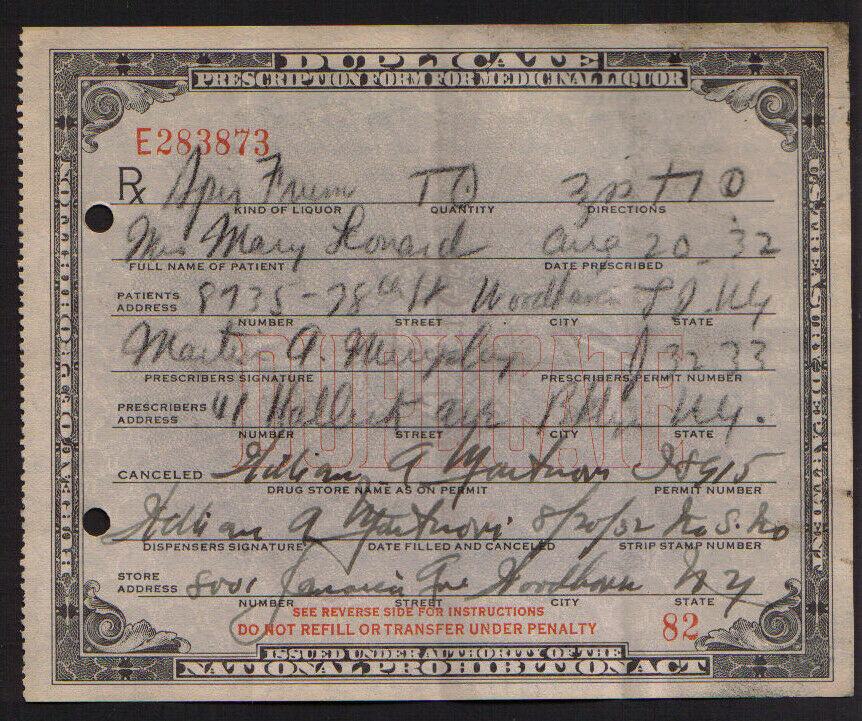 DUPLICATE
PRESCRIPTION FORM FOR MEDICINAL LIQUOR
E283873
Rx Spir Frum
KIND OF LIQUOR QUANTITY DIRECTIONS
Mrs Mary Aug 20-32
FULL NAME OF PATIENT DATE PRESCRIBED
PATIENTS ADDRESS 8735-78th St Woodhaven N.Y
NUMBER STREET CITY STATE
Martin A. Murphy 3233
PRESCRIBERS SIGNATURE PRESCRIBERS PERMIT NUMBER
DUPLICATE
PRESCRIBERS ADDRESS 41 Halleck ave Bklyn N.Y.
NUMBER STREET CITY STATE
CANCELED William A
DRUG STORE NAME AS ON PERMIT PERMIT NUMBER
William A 8/20/32
DISPENSERS SIGNATURE DATE FILLED AND CANCELED STRIP STAMP NUMBER
STORE ADDRESS 8001 Jamaica Ave Woodhaven N Y
NUMBER STREET CITY STATE
SEE REVERSE SIDE FOR INSTRUCTIONS
DO NOT REFILL OR TRANSFER UNDER PENALTY 82
ISSUED UNDER AUTHORITY OF THE
NATIONAL PROHIBITION ACT